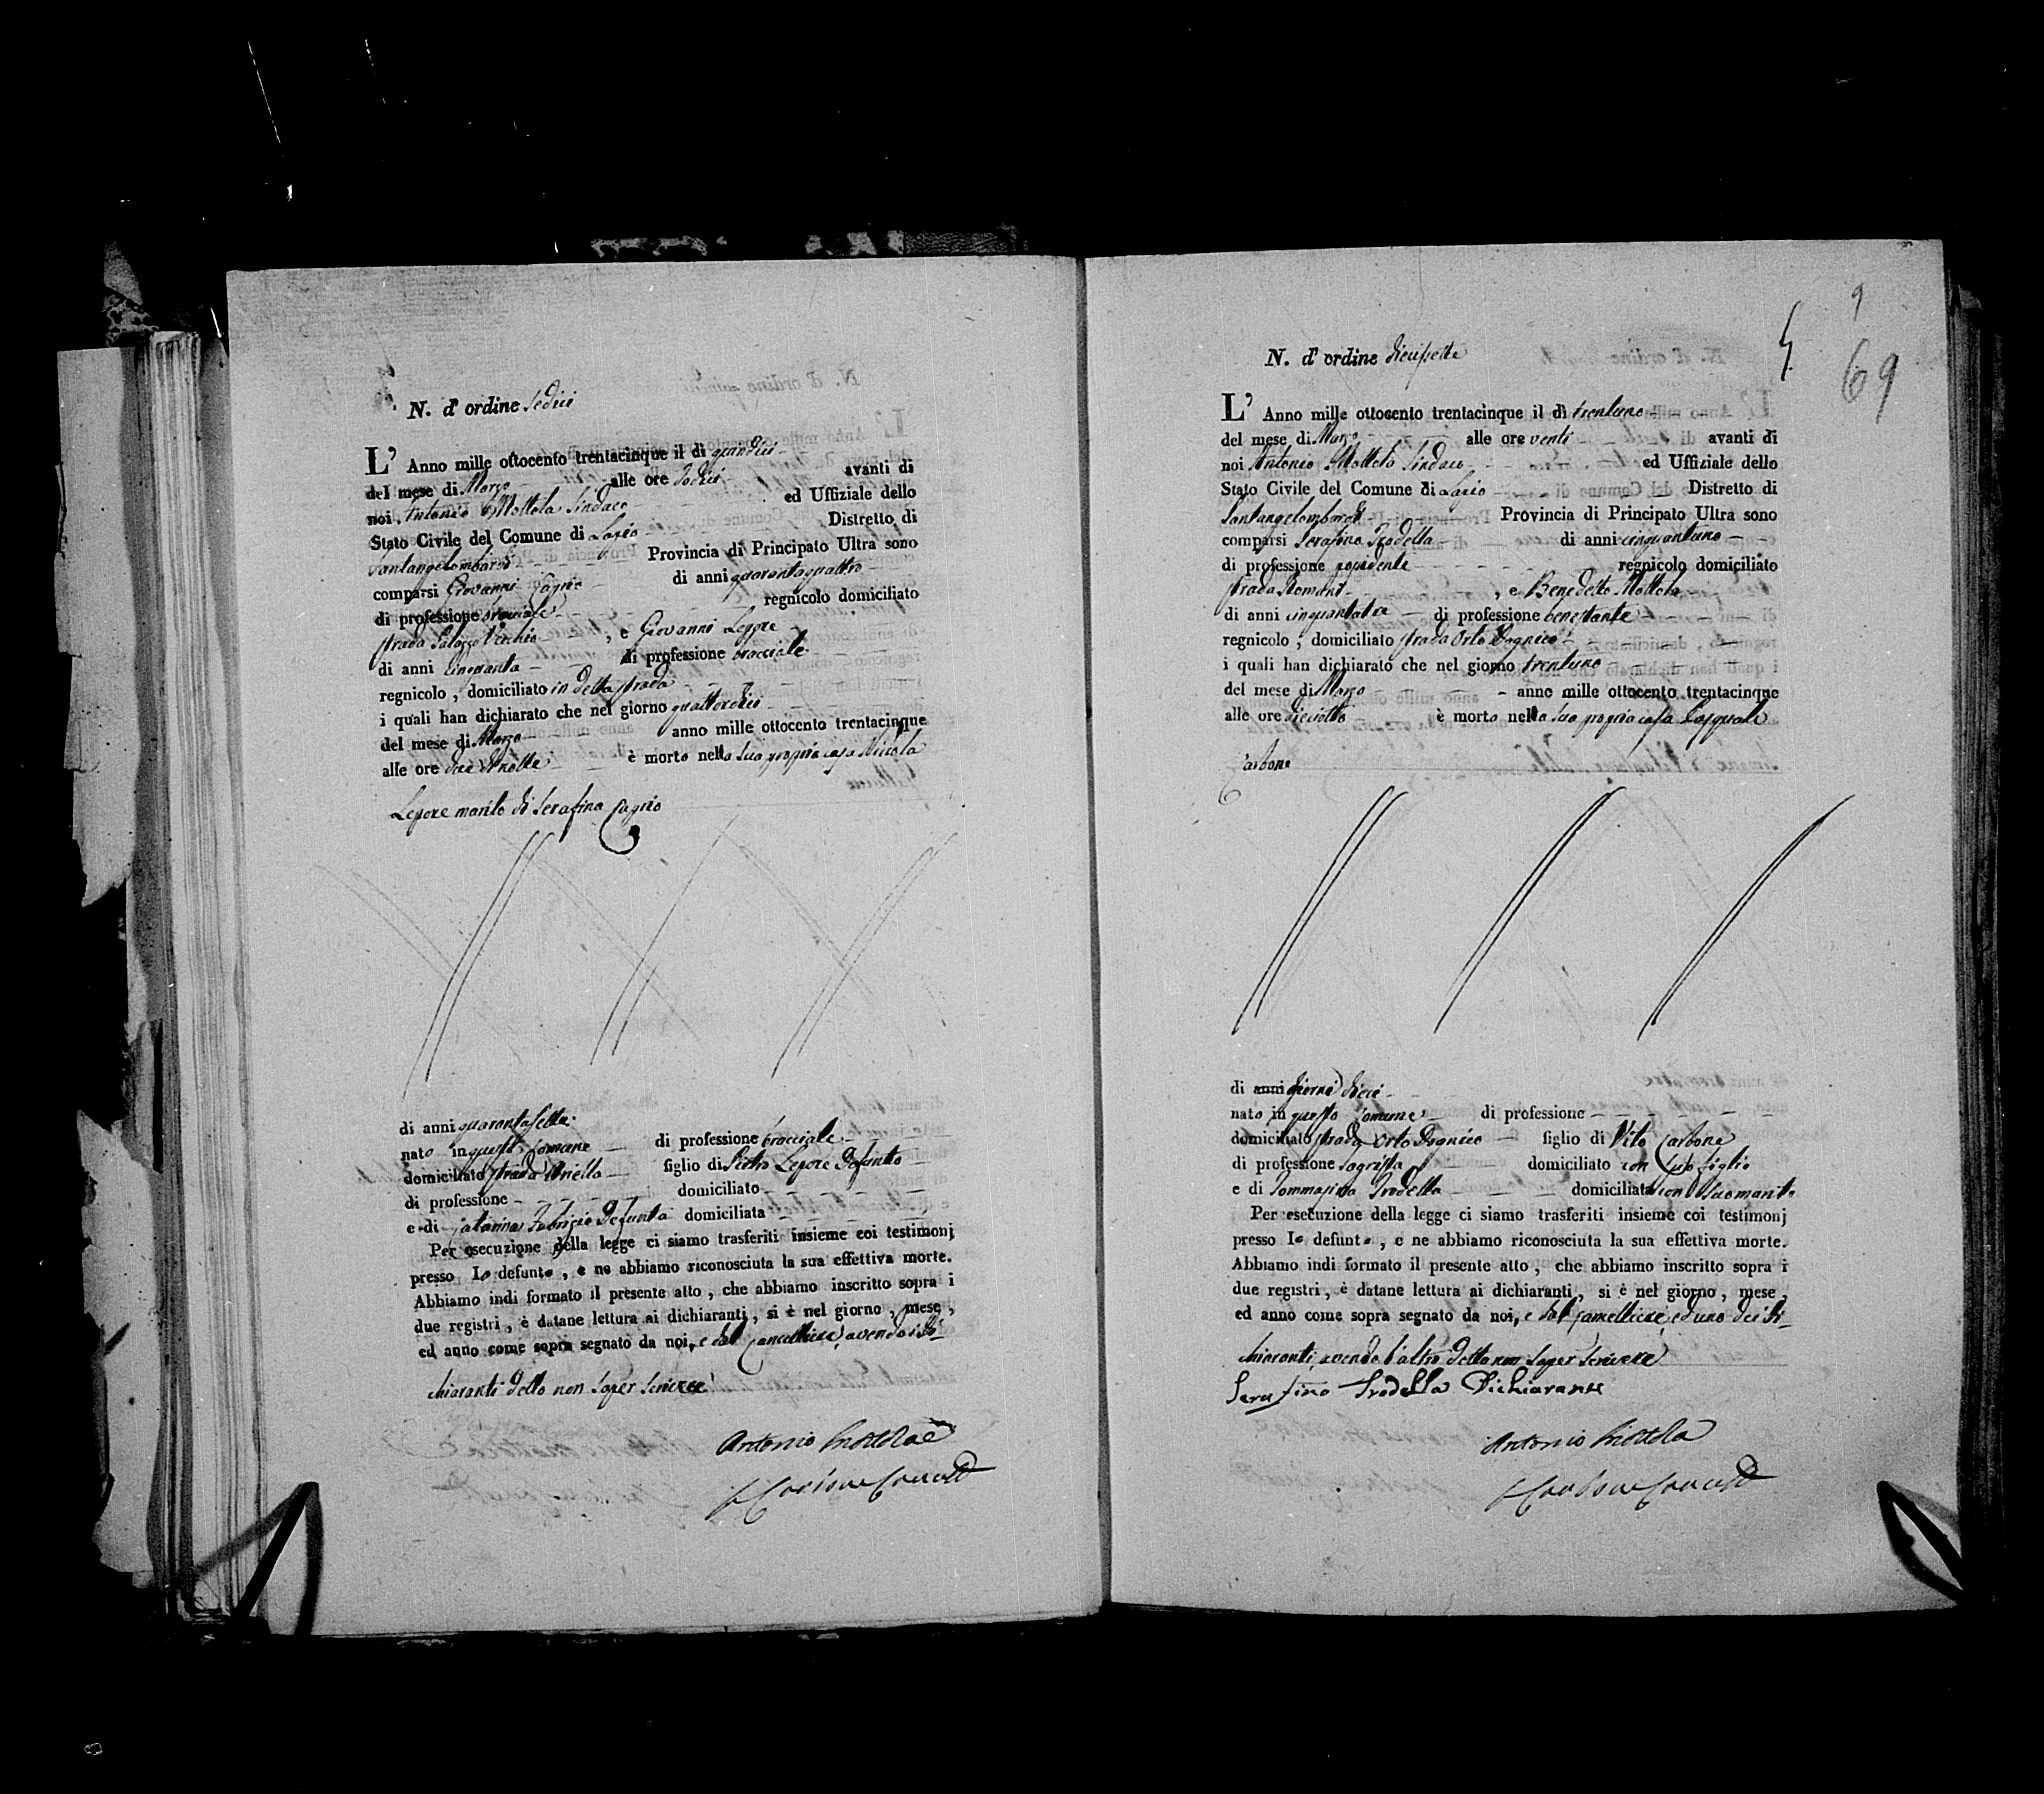 N. d' ordine sedici
L' Anno mille ottocento trentacinque il dì quindici
del mese di Marzo alle ore dodici avanti di
noi Antonio Mottola Sindaco ed Uffiziale dello
Stato Civile del Comune di Distretto di
Santangelombardi Provincia di Principato Ultra sono
comparsi Giovanni di anni quarantaquattro
di professione bracciale regnicolo domiciliato
strada Palazzo Vecchio , e Giovanni Lepore
di anni cinquanta di professione bracciale
regnicolo , domiciliato in detta strada
i quali han dichiarato che nel giorno quattordici
del mese di Marzo anno mille ottocento trentacinque
alle ore due di notte è morto nella sua propria casa Nicola
Lepore marito di Serafina
di anni quarantasette
nato in questo Comune di professione bracciale
domiciliato strada figlio di Pietro Lepore defunto
di professione domiciliato
e di Catarina Fabrizio defunta domiciliata
Per esecuzione della legge ci siamo trasferiti insieme coi testimonj
presso lo defunto , e ne abbiamo riconosciuta la sua effettiva morte.
Abbiamo indi formato il presente atto , che abbiamo inscritto sopra i
due registri , è datane lettura ai dichiaranti , si è nel giorno , mese ,
ed anno come sopra segnato da noi, e dal Cancelliere, avendo i di-
chiaranti detto non saper scrivere
Antonio Mottola
69
N. d' ordine diecisette
L' Anno mille ottocento trentacinque il dì trentuno
del mese di Marzo alle ore venti avanti di
noi Antonio Mottola Sindaco ed Uffiziale dello
Stato Civile del Comune di Distretto di
Santangelombardi Provincia di Principato Ultra sono
comparsi Serafino Prodella di anni cinquantuno
di professione possidente regnicolo domiciliato
strada , e Benedetto Mottola
di anni cinquantatre di professione benestante
regnicolo , domiciliato strada Orto
i quali han dichiarato che nel giorno trentuno
del mese di Marzo anno mille ottocento trentacinque
alle ore dieciotto è morto nella sua propria casa Pasquale
Carbone
di anni giorni dieci
nato in questo Comune di professione
domiciliato strada Orto figlio di Vito Carbone
di professione domiciliato con suo figlio
e di Tommasina Prodella domiciliata con suo marito
Per esecuzione della legge ci siamo trasferiti insieme coi testimonj
presso lo defunto , e ne abbiamo riconosciuta la sua effettiva morte.
Abbiamo indi formato il presente atto , che abbiamo inscritto sopra i
due registri , è datane lettura ai dichiaranti , si è nel giorno , mese ,
ed anno come sopra segnato da noi, e dal Cancelliere, ed uno dei di-
chiaranti, avendo l'altro detto non saper scrivere
Serafino Prodella Dichiarante
Antonio Mottola